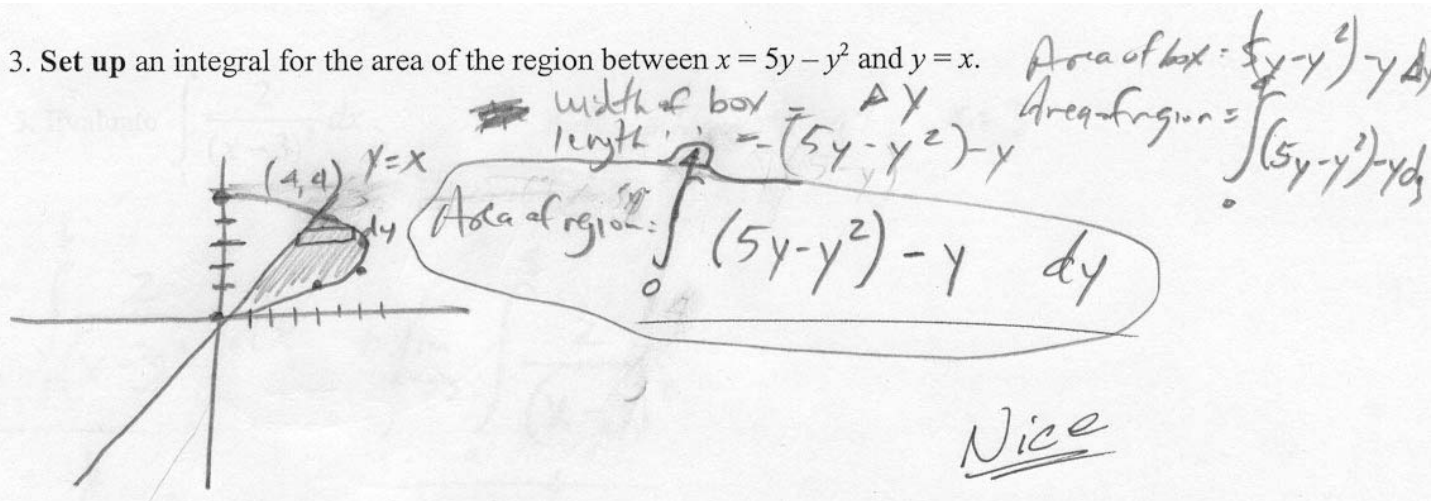 3. Set up an integral for the area of the region between x = 5y – y² and y = x.
Area of box = (5y-y²)-y Δy
Area of region = ∫₀⁴ (5y-y²)-y dy
width of box = Δy
length " " = (5y-y²)-y
(4,4) y=x
dy
Area of region: ∫₀⁴ (5y-y²) - y dy
Nice